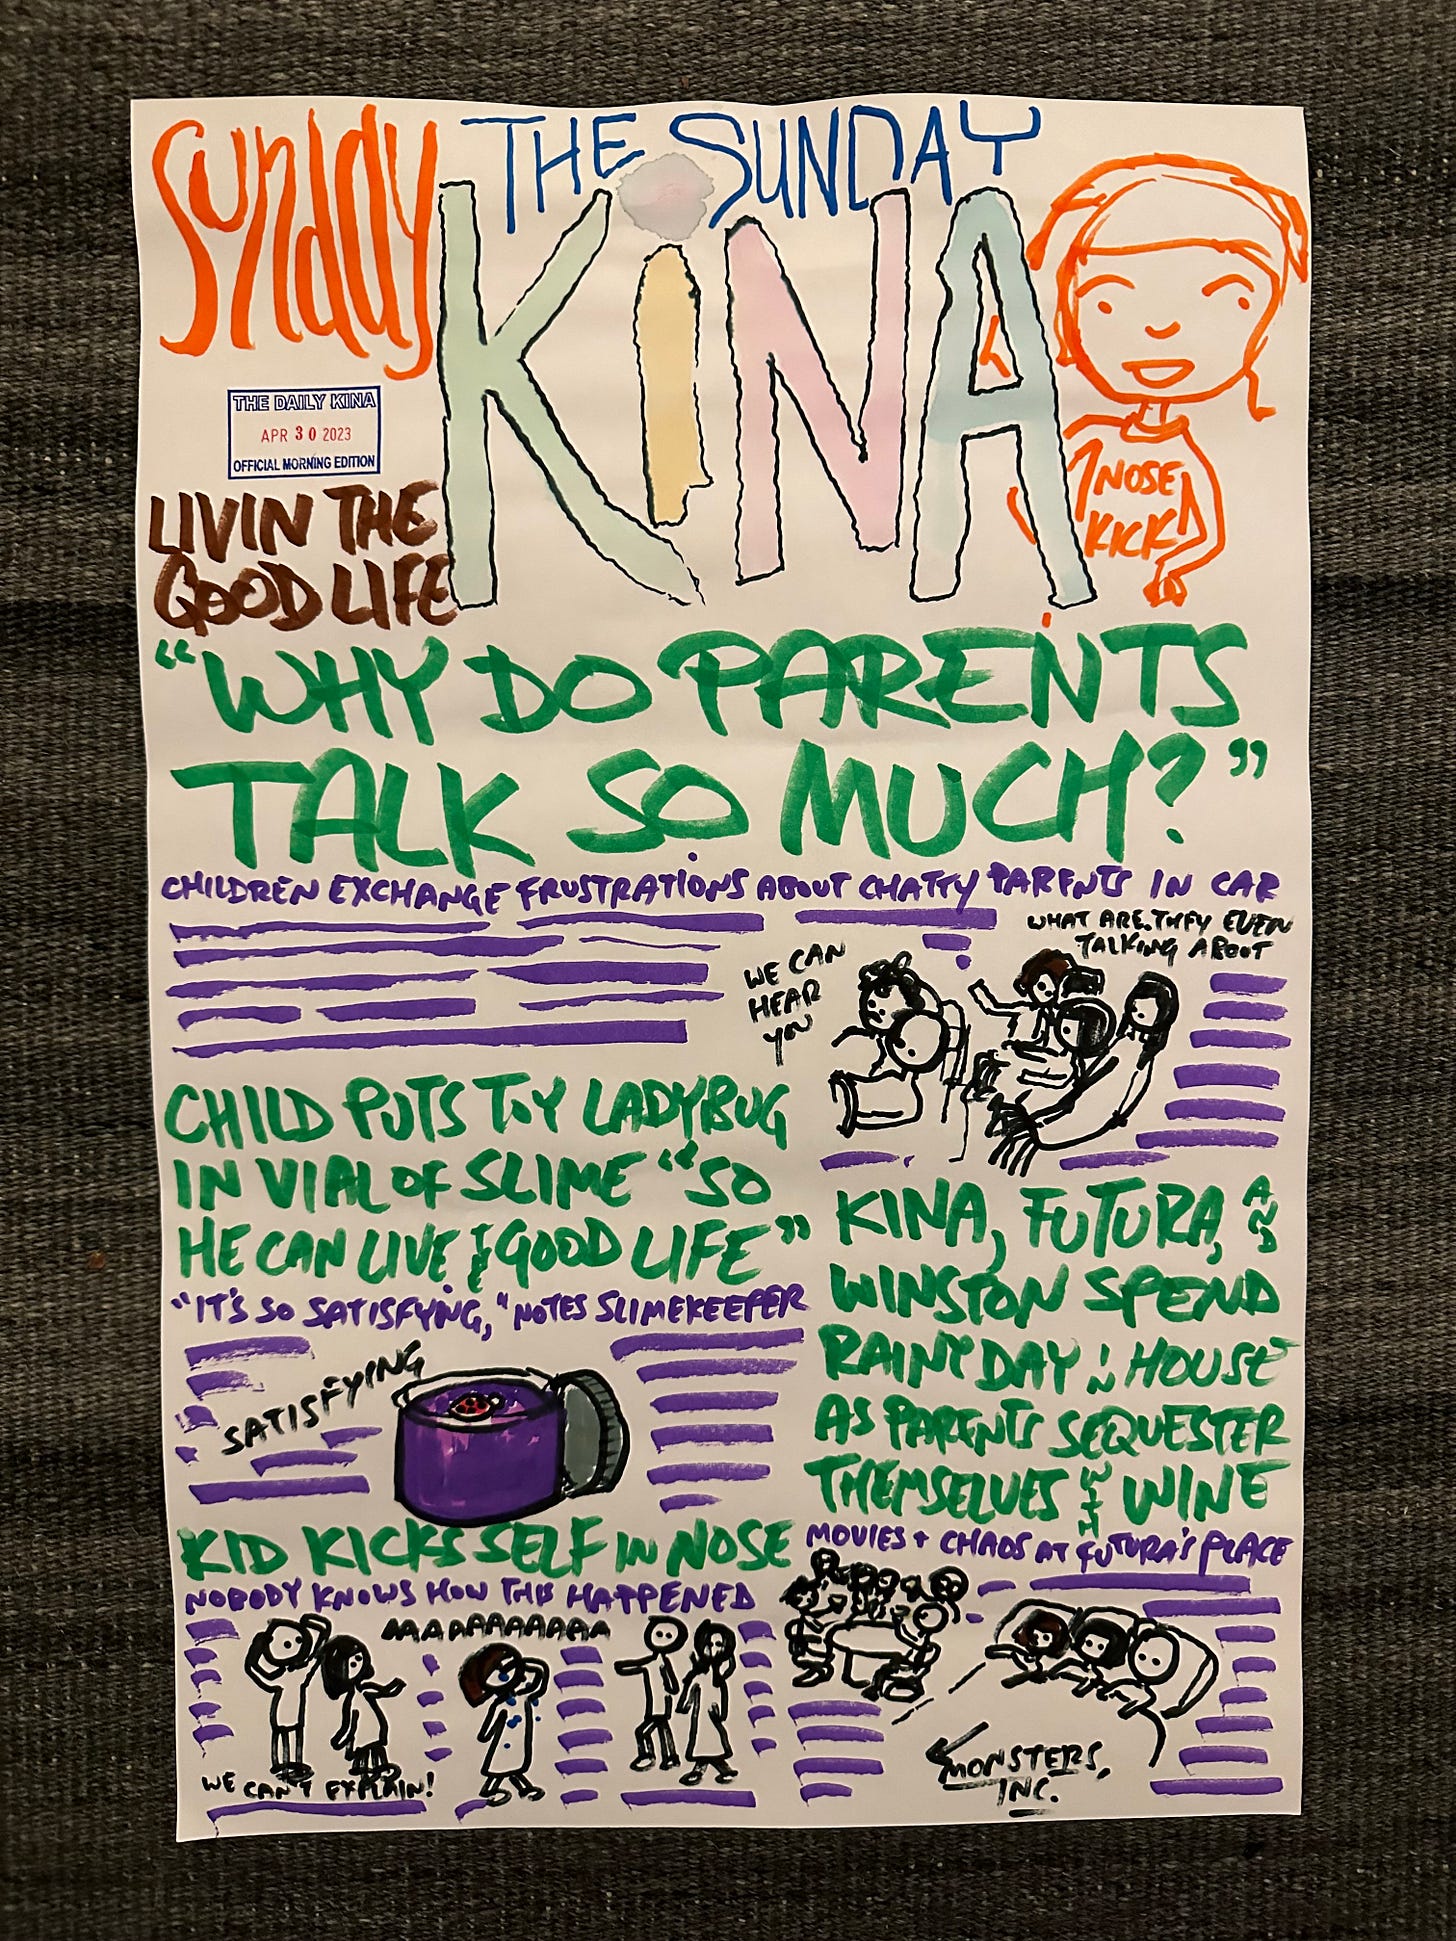 Sunday
THE SUNDAY
KiNA
THE DAILY KINA
APR 30 2023
OFFICIAL MORNING EDITION
LIVIN THE
GOOD LIFE
NOSE
KICK
"WHY DO PARENTS
TALK SO MUCH?"
CHILDREN EXCHANGE FRUSTRATIONS ABOUT CHATTY PARENTS IN CAR
WE CAN
HEAR
YOU
WHAT ARE THEY EVEN
TALKING ABOUT
CHILD PUTS TOY LADYBUG
IN VIAL OF SLIME "SO
HE CAN LIVE THE GOOD LIFE"
"IT'S SO SATISFYING," NOTES SLIMEKEEPER
SATISFYING
KINA, FUTURA, AND
WINSTON SPEND
RAINY DAY IN HOUSE
AS PARENTS SEQUESTER
THEMSELVES WITH WINE
MOVIES + CHAOS AT FUTURA'S PLACE
MONSTERS,
INC.
KID KICKS SELF IN NOSE
NOBODY KNOWS HOW THIS HAPPENED
AAAAAAAAAAAA
WE CAN'T EXPLAIN!